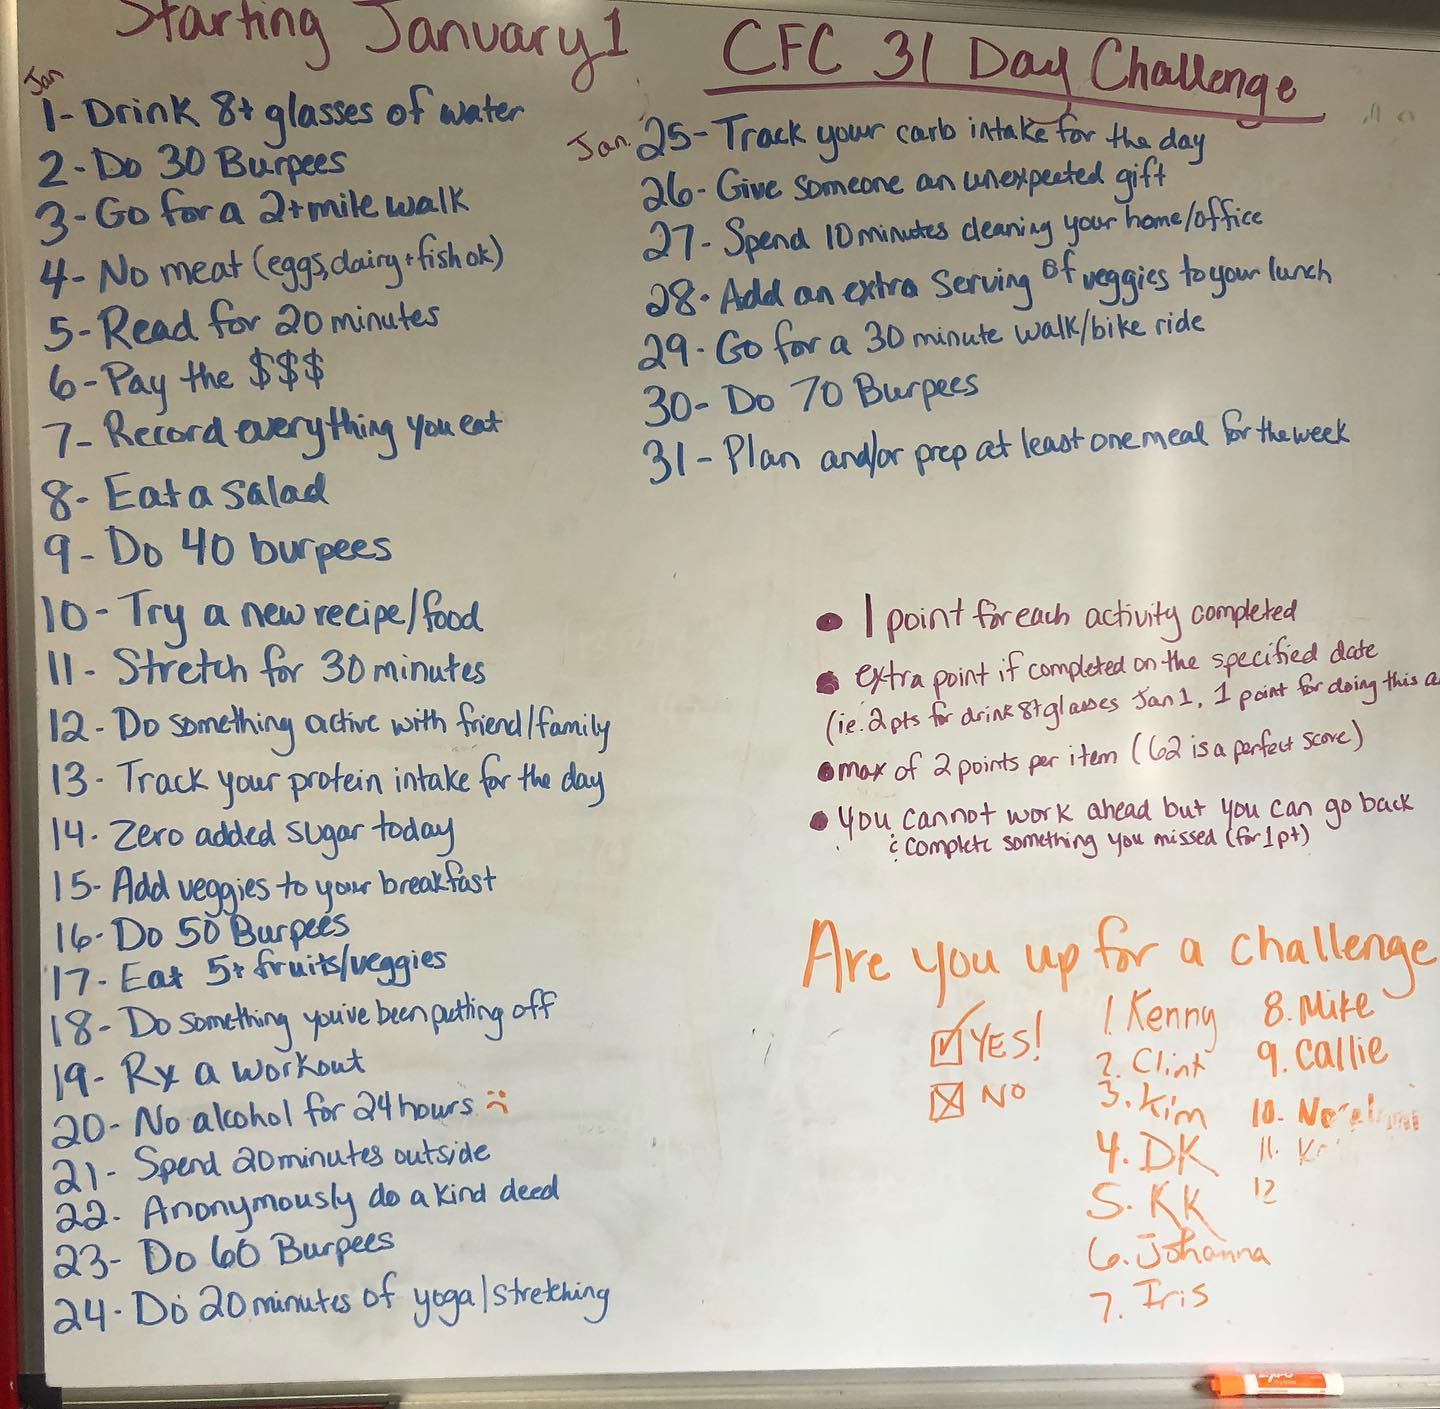 Starting January 1
CFC 31 Day Challenge
Jan
1- Drink 8+ glasses of water
2- Do 30 Burpees
3- Go for a 2+ mile walk
4- No meat (eggs, dairy + fish ok)
5- Read for 20 minutes
6- Pay the $$$
7- Record everything you eat
8- Eat a salad
9- Do 40 burpees
10- Try a new recipe/food
11- Stretch for 30 minutes
12- Do something active with friend/family
13- Track your protein intake for the day
14- Zero added sugar today
15- Add veggies to your breakfast
16- Do 50 Burpees
17- Eat 5+ fruits/veggies
18- Do something you've been putting off
19- Rx a workout
20- No alcohol for 24 hours
21- Spend 20 minutes outside
22- Anonymously do a kind deed
23- Do 60 Burpees
24- Do 20 minutes of yoga/stretching
Jan. 25- Track your carb intake for the day
26- Give someone an unexpected gift
27- Spend 10 minutes cleaning your home/office
28- Add an extra serving of veggies to your lunch
29- Go for a 30 minute walk/bike ride
30- Do 70 Burpees
31- Plan and/or prep at least one meal for the week
• 1 point for each activity completed
• extra point if completed on the specified date
(ie. 2pts for drink 8+ glasses Jan 1, 1 point for doing this
• max of 2 points per item (62 is a perfect score)
• you cannot work ahead but you can go back
& complete something you missed (for 1pt)
Are you up for a challenge
YES!
NO
1. Kenny
2. Clint
3. Kim
4. DK
5. KK
6. Johanna
7. Iris
8. Mike
9. Callie
10.
11.
12
EXPO